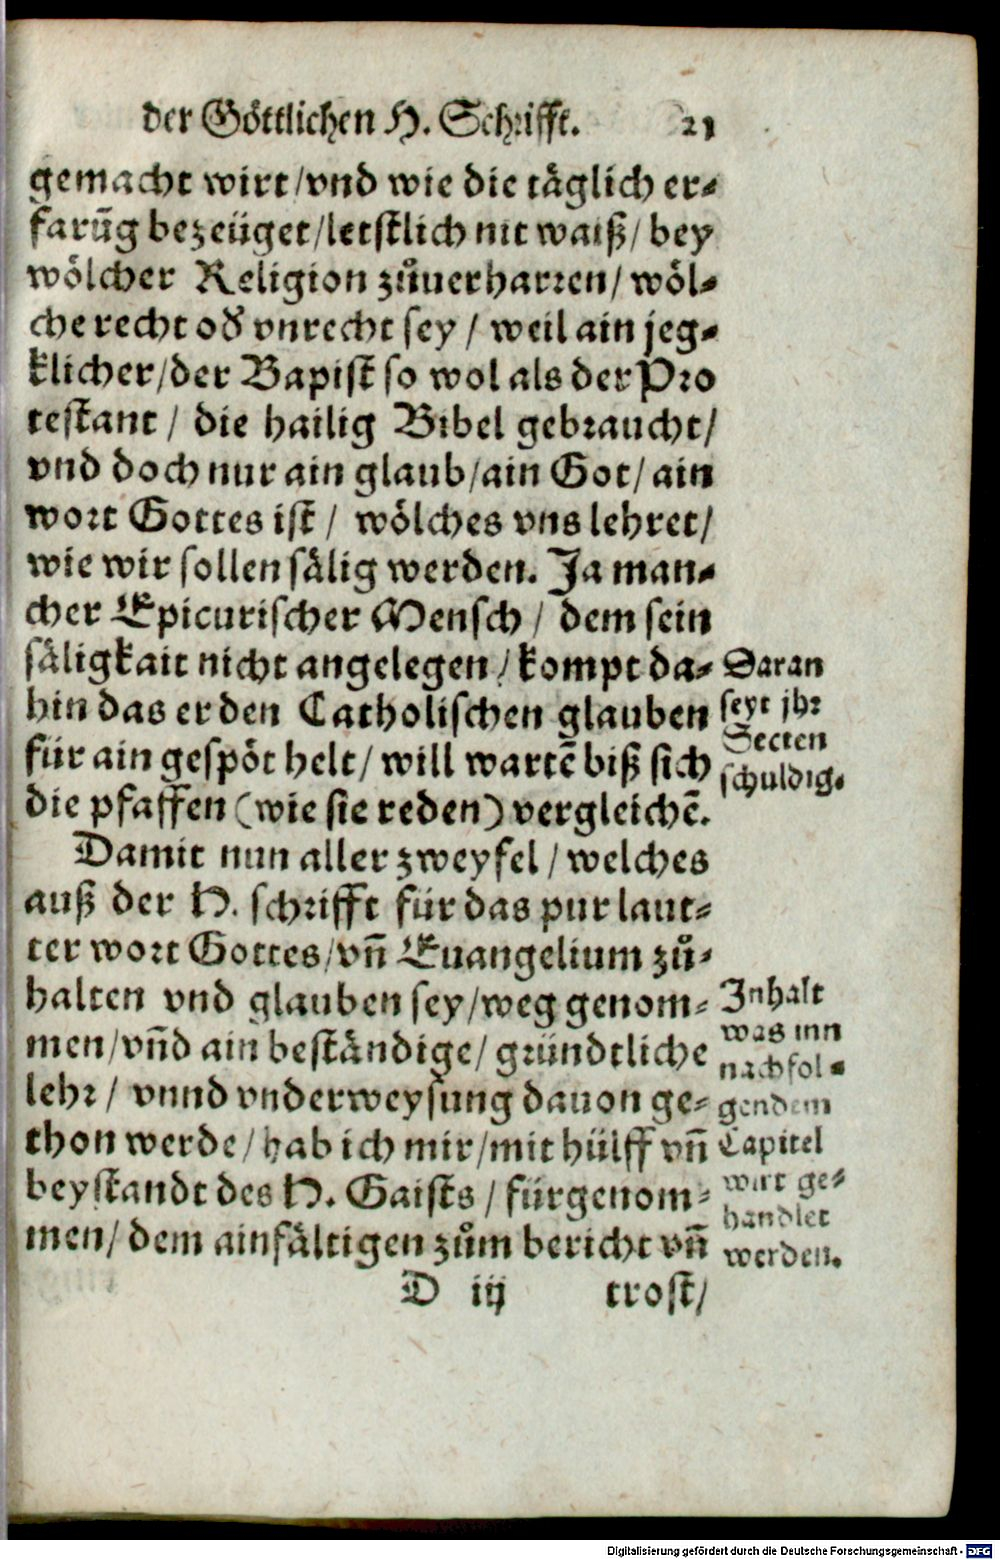 der Göttlichen H. Schrifft. 21
gemacht wirt/vnd wie die täglich er-
farūg bezeüget/letstlich nit waiß/ bey
wölcher Religion zůuerharren/ wöl-
che recht oď vnrecht sey / weil ain jeg-
klicher/der Bapist so wol als der Pro
testant / die hailig Bibel gebraucht/
vnd doch nur ain glaub/ain Got/ ain
wort Gottes ist / wölches vns lehret/
wie wir sollen sälig werden. Ja man-
cher Epicurischer Mensch / dem sein
säligkait nicht angelegen / kompt da-
hin das er den Catholischen glauben
für ain gespöt helt/ will wartē biß sich
die pfaffen (wie sie reden) vergleichē.
Daran
seyt jhr
Secten
schuldig.
Damit nun aller zweyfel / welches
auß der H. schrifft für das pur laut-
ter wort Gottes/vn̄ Euangelium zů-
halten vnd glauben sey/weg genom-
men/vn̄d ain beständige/ gründtliche
lehr / vnnd vnderweysung dauon ge-
thon werde/ hab ich mir/mit hülff vn̄
beystandt des H. Gaists / fürgenom-
men/ dem ainfältigen zům bericht vn̄
Inhalt
was inn
nachfol-
gendem
Capitel
wirt ge-
handlet
werden.
D iij trost/
Digitalisierung gefördert durch die Deutsche Forschungsgemeinschaft - DFG